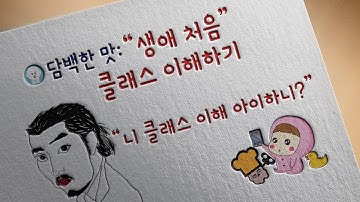 담백한 맛: “생애 처음”
클래스 이해하기
“니 클래스 이해 아이하니?”